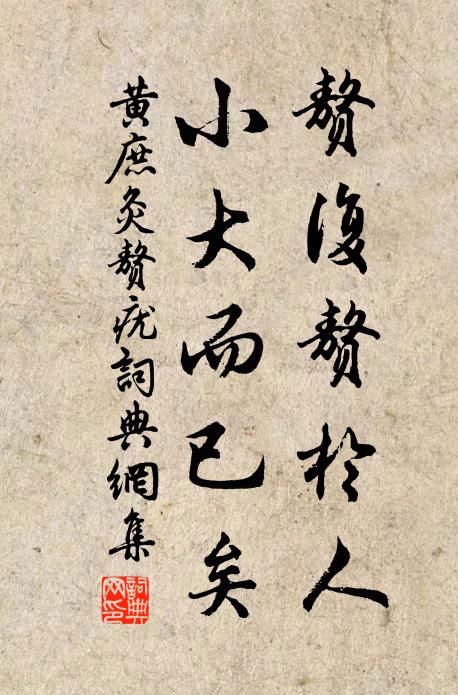 贅復贅於人
小大而已矣
黃庶灸贅疣詞典網集
詞典
文印